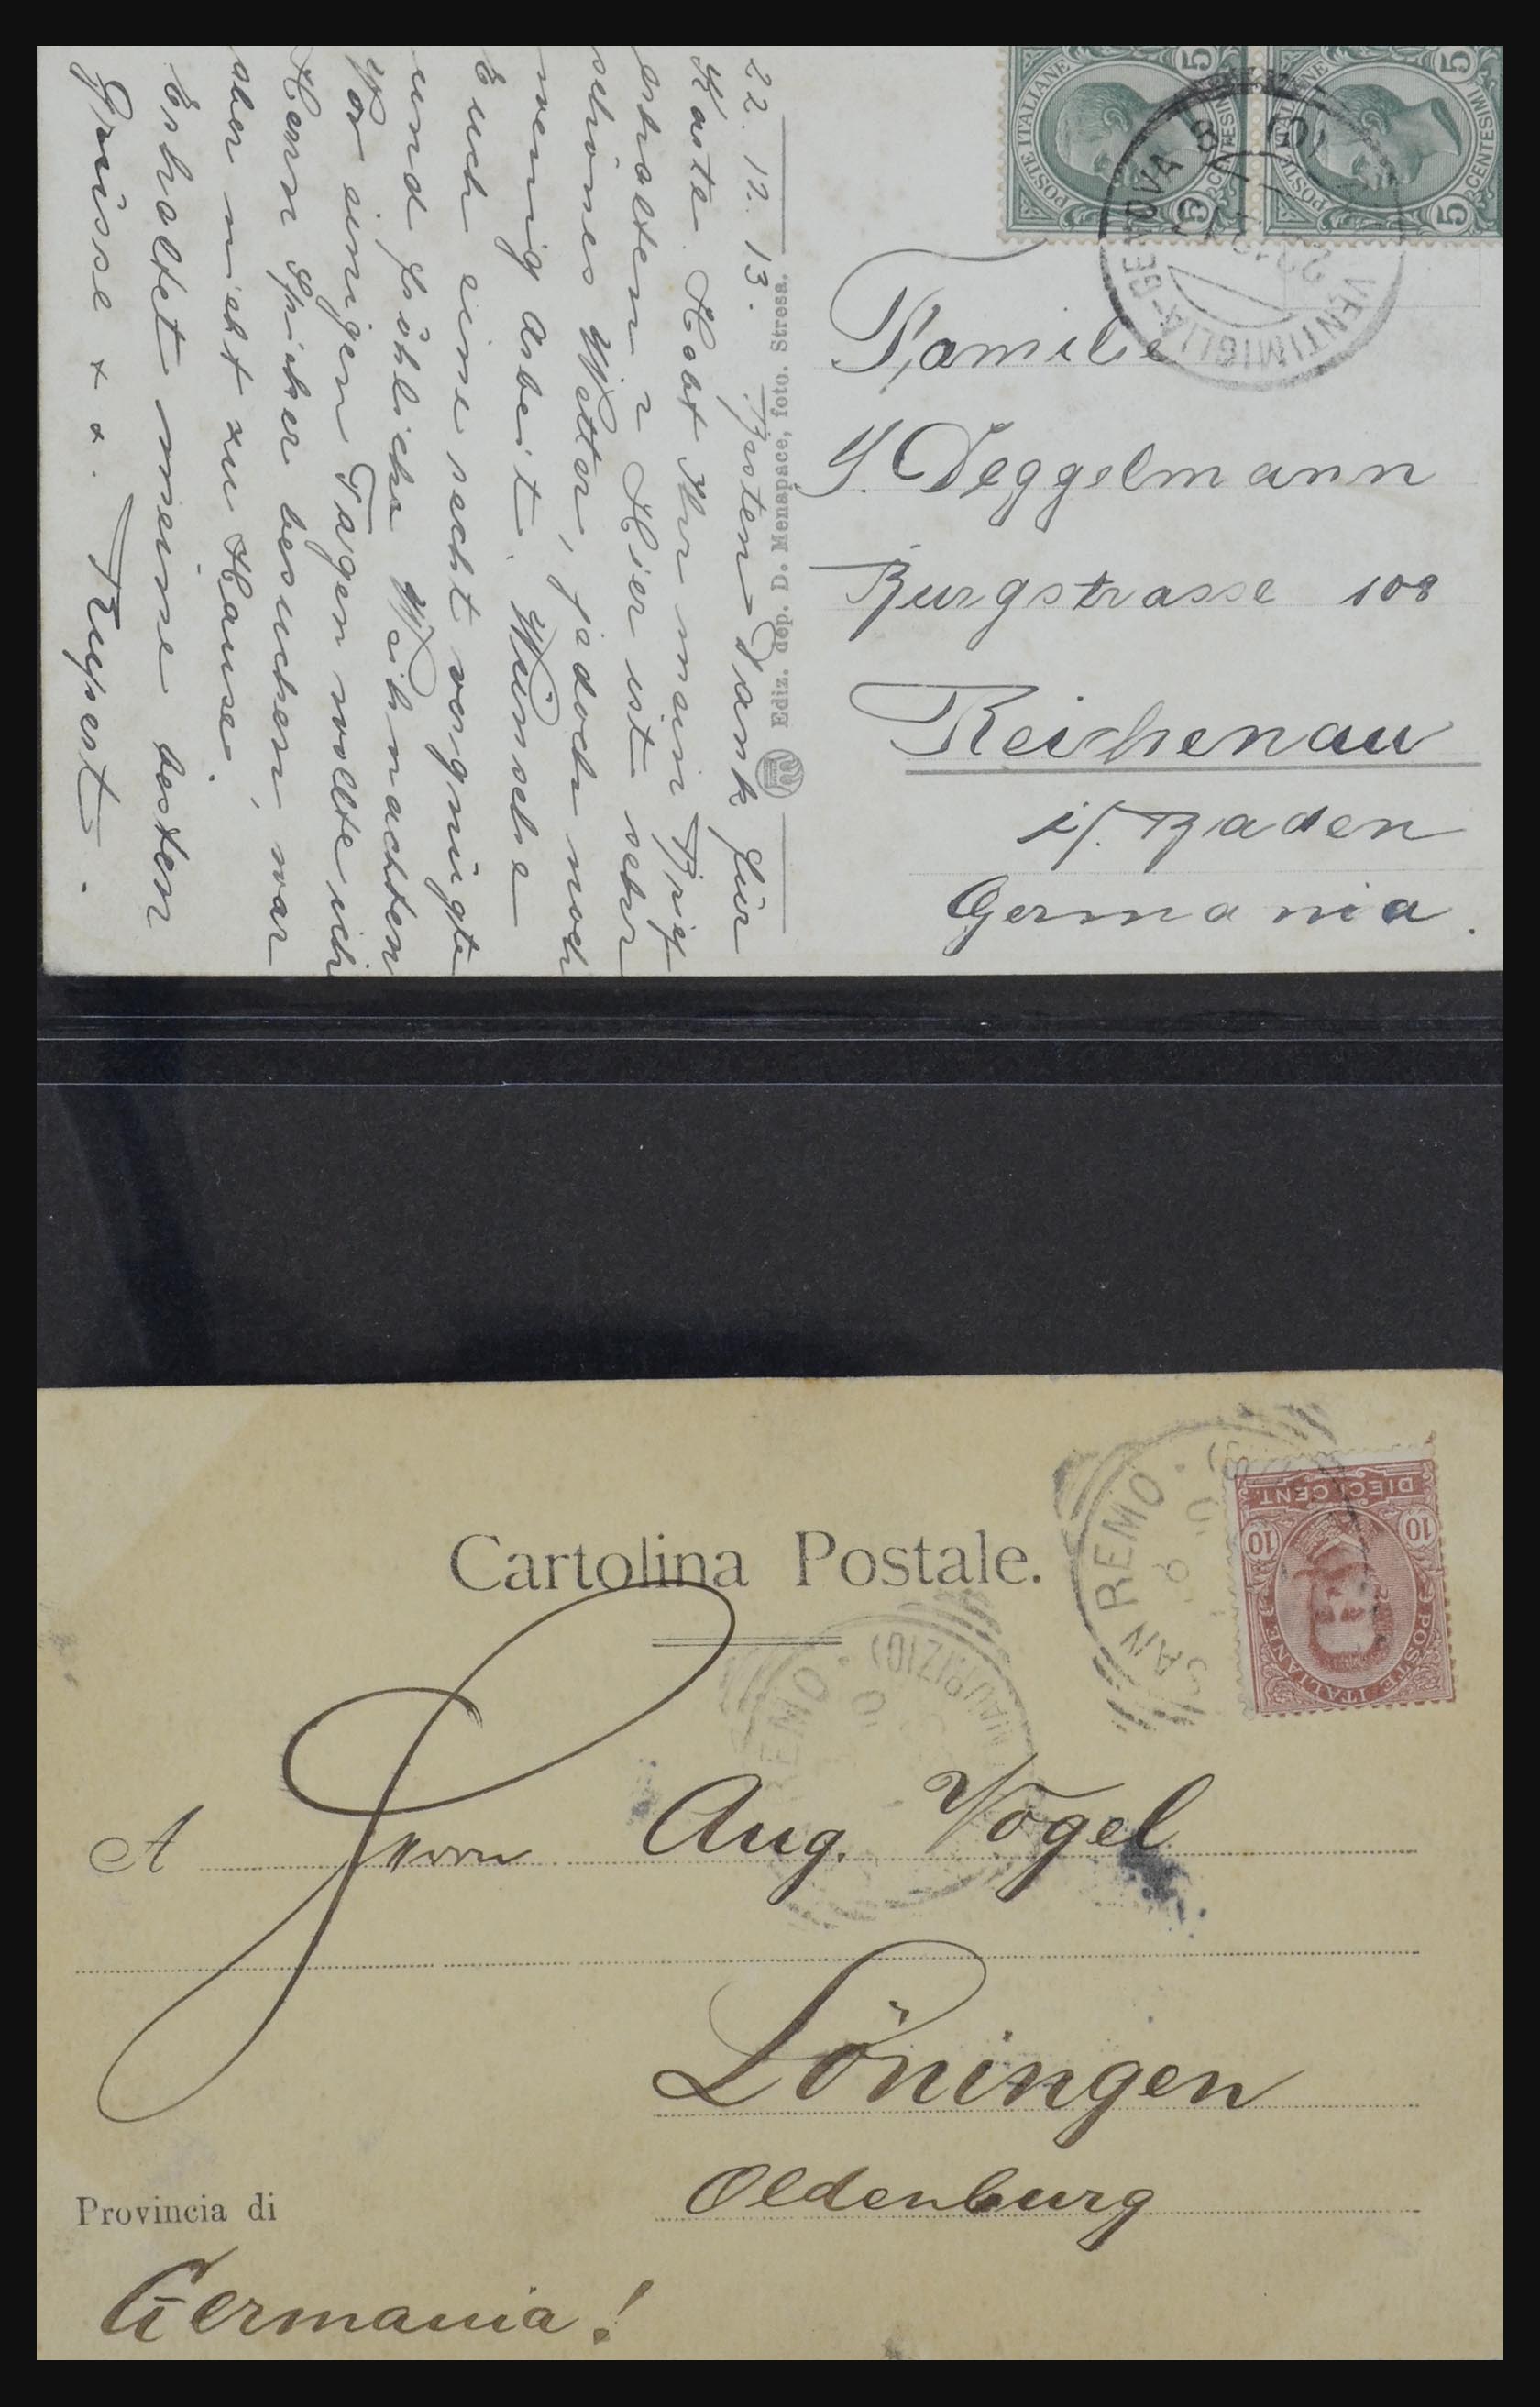 22. 12. 13. Besten Dank für
Karte. Habt Ihr mein Brief
erhalten? Hier ist sehr
schönes Wetter, jedoch noch
wenig Arbeit. Wünsche
Euch eine recht vergnügte
und fröhliche Weihnachten
Vor einigen Tagen wollte ich
Herrn Spicker besuchen, war
aber nicht zu Hause.
Erhaltet meine besten
Grüsse
Rupert.
Ediz. dep. D. Menapace, foto. Stresa.
POSTE ITALIANE
5 CENTESIMI 5
POSTE ITALIANE
5 CENTESIMI 5
VENTIMIGLIA-GENOVA 8
Familie
J. Deggelmann
Burgstrasse 108
Reichenau
i/. Baden
Germania.
Cartolina Postale.
SAN REMO
POSTE ITALIANE
10 10
DIECI CENT.
REMO (MAURIZIO)
A Herrn Aug. Vogel
Löningen
Oldenburg
Provincia di
Germania!